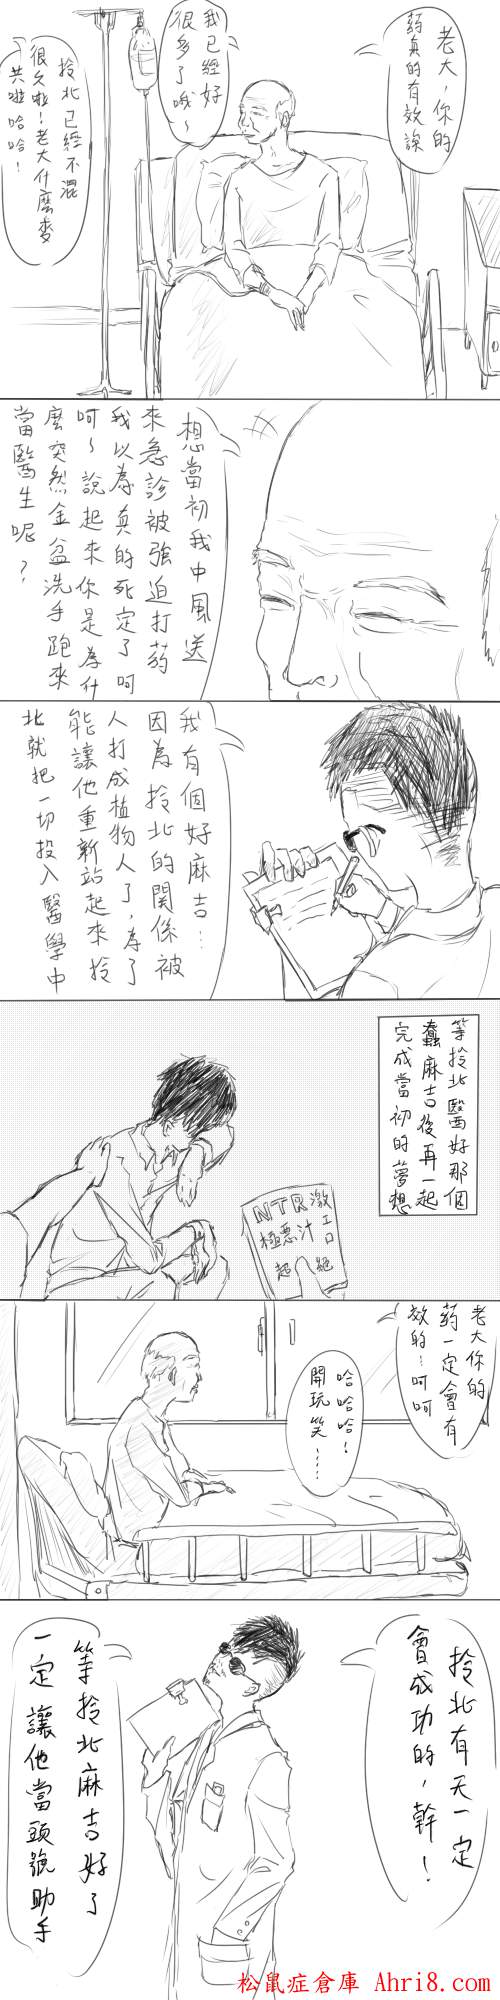 老大，你的
葯真的有效誒
我已經好
很多了哦～
拎北已經不混
很久啦！老大什麼麥
共啦哈哈！
想當初我中風送
來急診被強迫打葯
我以為真的死定了呵
呵～說起來你是為什
麼突然金盆洗手跑來
當醫生呢？
我有個好麻吉…
因為拎北的關係被
人打成植物人了，為了
能讓他重新站起來拎
北就把一切投入醫學中
等拎北醫好那個
蠢麻吉後再一起
完成當初的夢想
NTR激エロ
極惡汁
超絕
老大你的
葯一定會有
效的…呵呵
哈哈哈！
開玩笑……
拎北有天一定
會成功的，幹！
等拎北麻吉好了
一定讓他當頭號助手
松鼠症倉庫 Ahri8.com